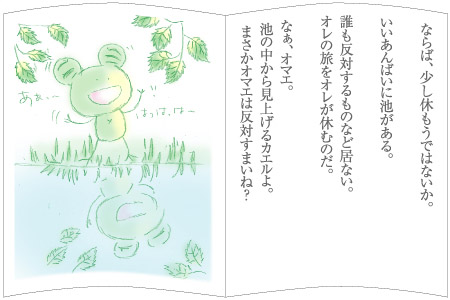 ならば、少し休もうではないか。
いいあんばいに池がある。
誰も反対するものなど居ない。
オレの旅をオレが休むのだ。
なぁ、オマエ。
池の中から見上げるカエルよ。
まさかオマエは反対すまいね?
あぁぁー
はっはっはー